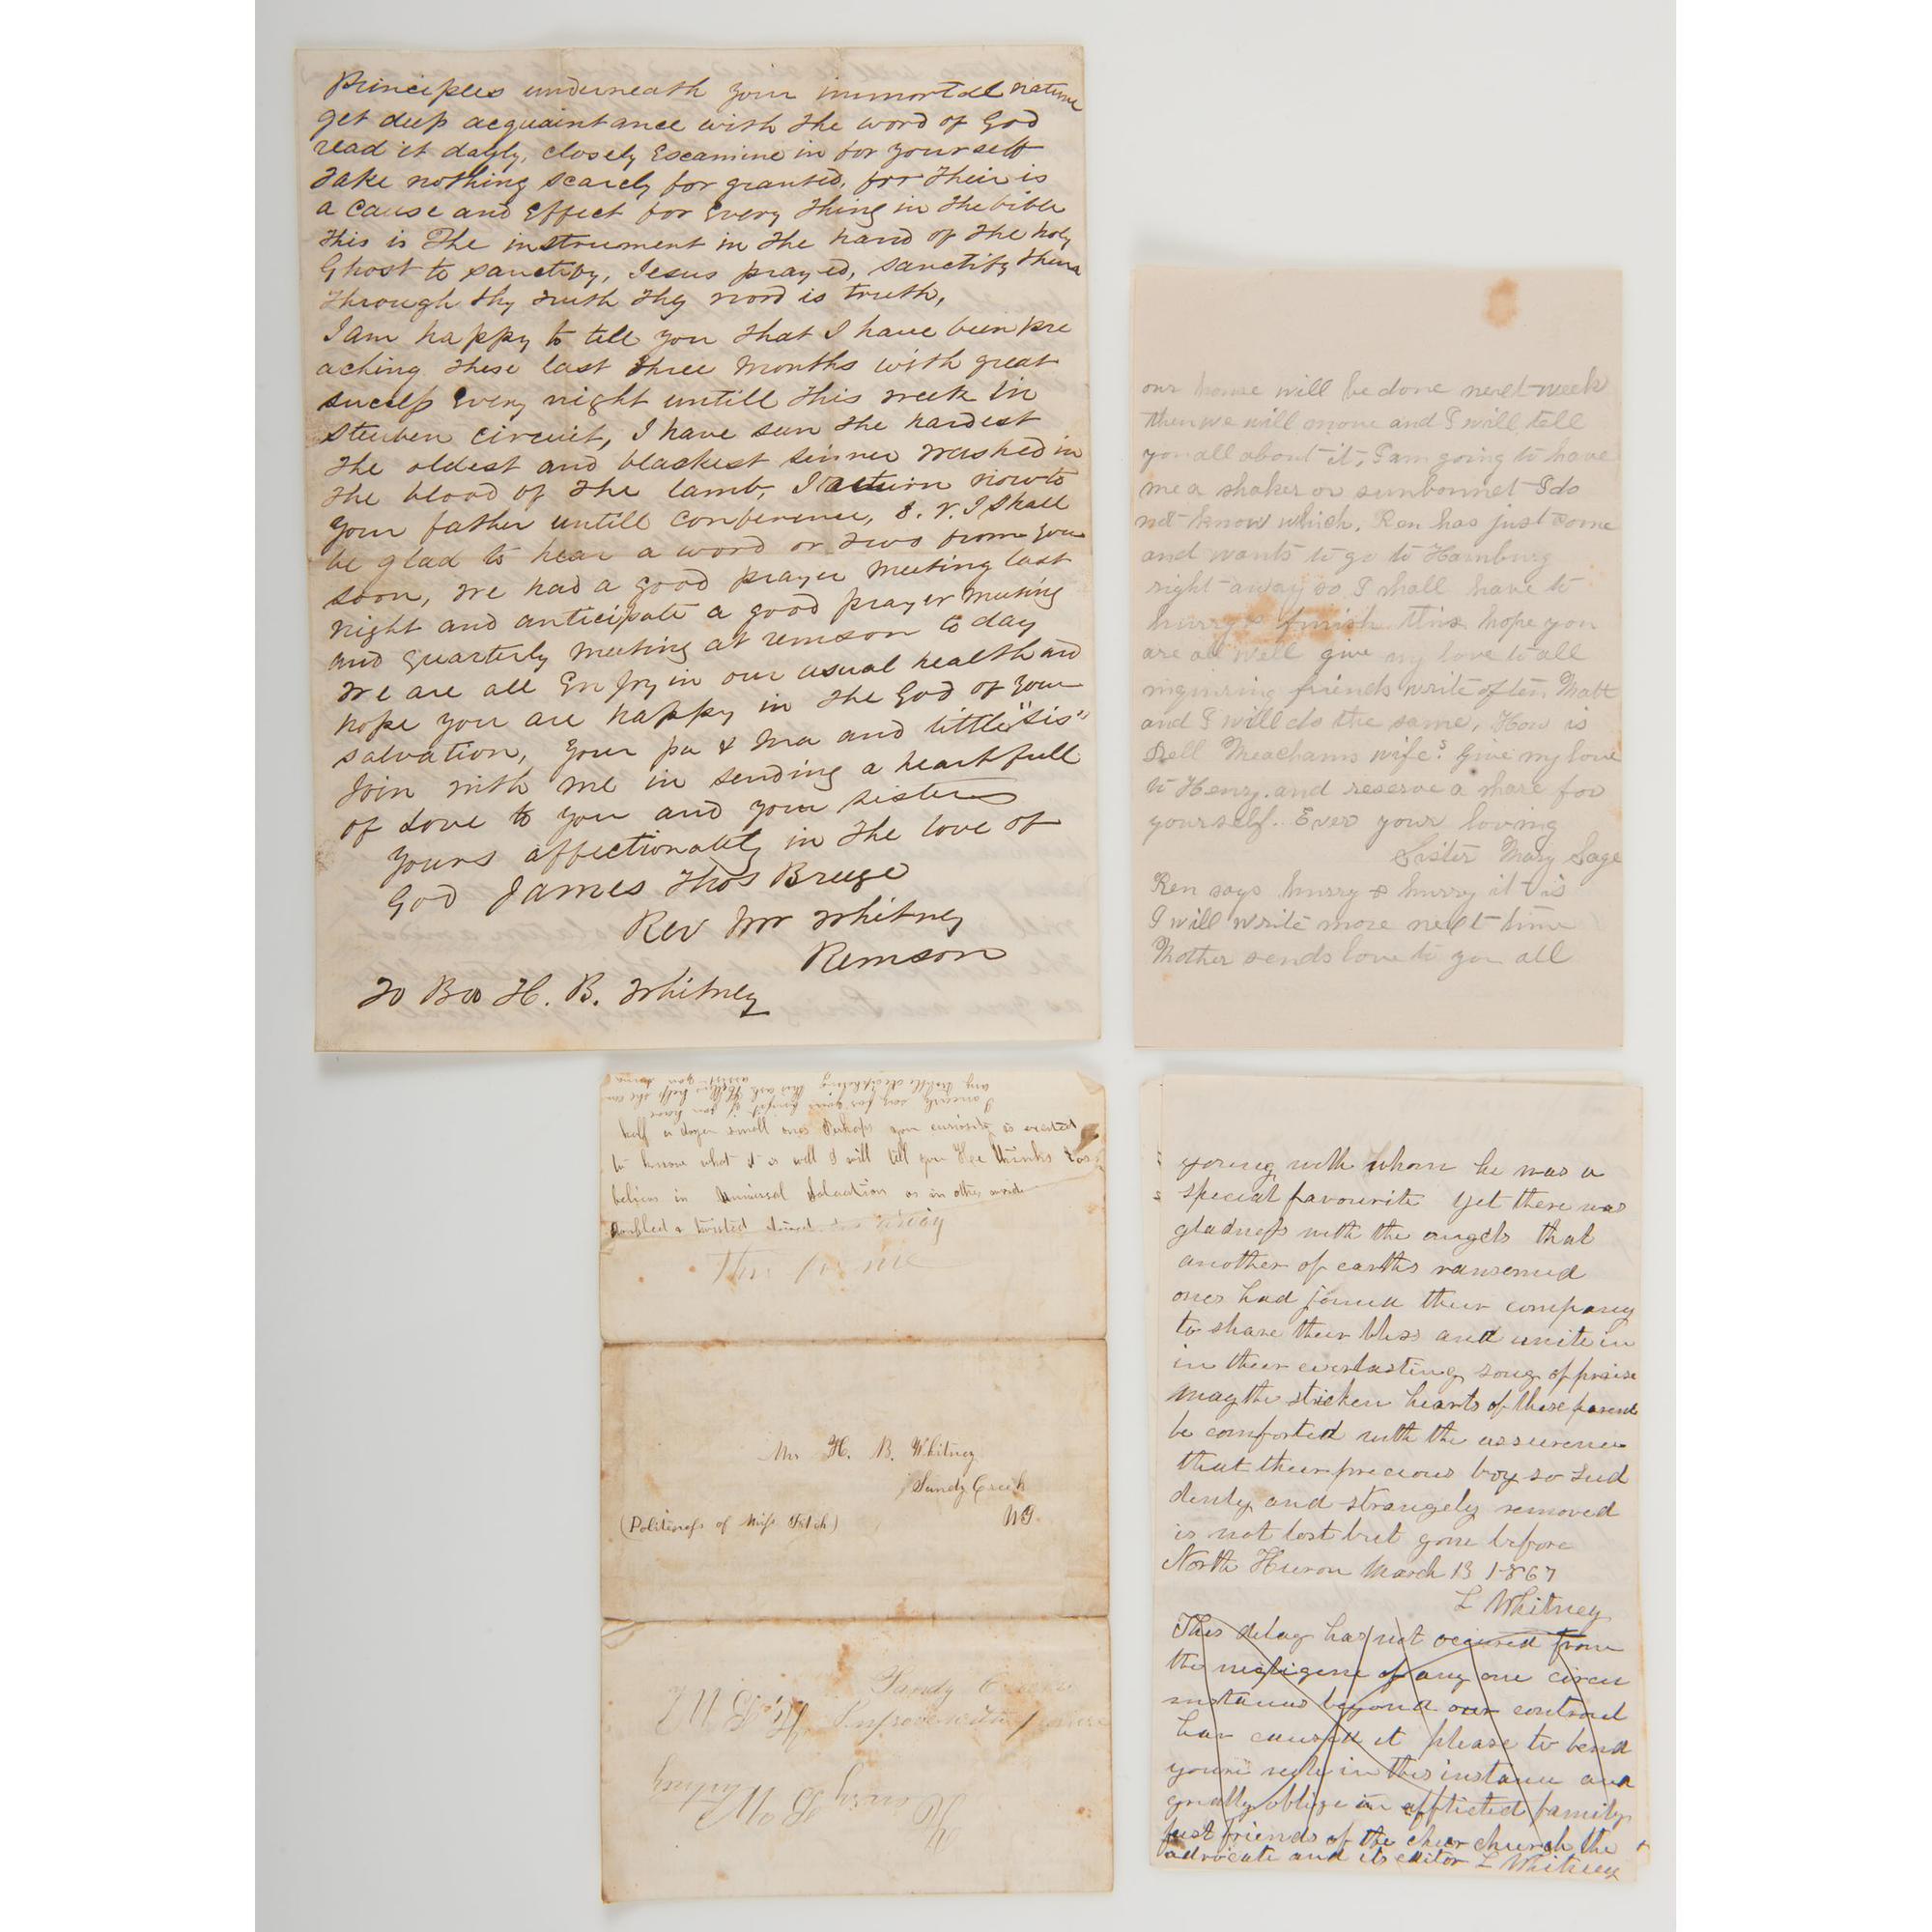 Principles underneath your immortal nature
get deep acquaintance with the word of God
read it dayly, closely Escamine in for yourself
Take nothing scarely for granted, for their is
a cause and Effect for Every thing in the bible
This is The instrument in the hand of the holy
Ghost to sanctify, Jesus prayed, sanctify them
through thy truth thy word is truth,
I am happy to tell you that I have been pre
aching these last three months with great
sucess Every night untill this week in
Steuben circuit, I have seen the hardest
The oldest and blackest sinner washed in
the blood of the lamb, I return now to
your father untill conference, I shall
be glad to hear a word or two from you
soon, we had a good prayer meeting last
night and anticipate a good prayer meeting
and quarterly meeting at remson to day
We are all Enjoyin our usual health and
hope you are happy in the God of your
salvation, your pa & Ma and little "sis"
Join with me in sending a heartfull
of Love to you and your sister
yours affectionately in the love of
God James Thos Breeze
Rev Mr Whitney
Remson
To Bro H. B. Whitney
our house will be done next week
then we will move and I will tell
you all about it, I am going to have
me a shaker or sunbonnet I do
not know which. Ren has just come
and wants to go to Hamburg
right away so I shall have to
hurry & finish this hope you
are all well give my love to all
inquiring friends write often Matt
and I will do the same, How is
Dell Meachams wife? Give my love
to Henry. and reserve a share for
yourself. Ever your loving
Sister Mary Sage
Ren says hurry & hurry it is
I will write more next time
Mother sends love to you all
I sincerely say for your benefit if you have
any trouble deciphering this ask help she can
assist you some
half a dozen small ones Perhaps your curiosity is excited
to know what it is well I will tell you Hee thinks
believe in Universal Salvation or in other words
doubled & twisted
Mr H. B. Whitney
Sandy Creek
(Politeness of Miss Fitch) NY.
Sandy Creek
H. B. W
Henry B Whitney
young with whom he was a
special favourite yet there was
gladness with the angels that
another of earths ransomed
ones had joined their company
to share their bliss and unite in
in their everlasting song of praise
May the stricken hearts of these parents
be comforted with the assurence
that their precious boy so sud
denly and strangely removed
is not lost but gone before
North Huron March 13 1867
L Whitney
This delay has not occured from
the negligence of any one circu
mstances beyond our controul
has caused it please to bend
youre rule in this instance and
greatly oblige an afflicted family
fast friends of the church the
advocate and its editor L Whitney